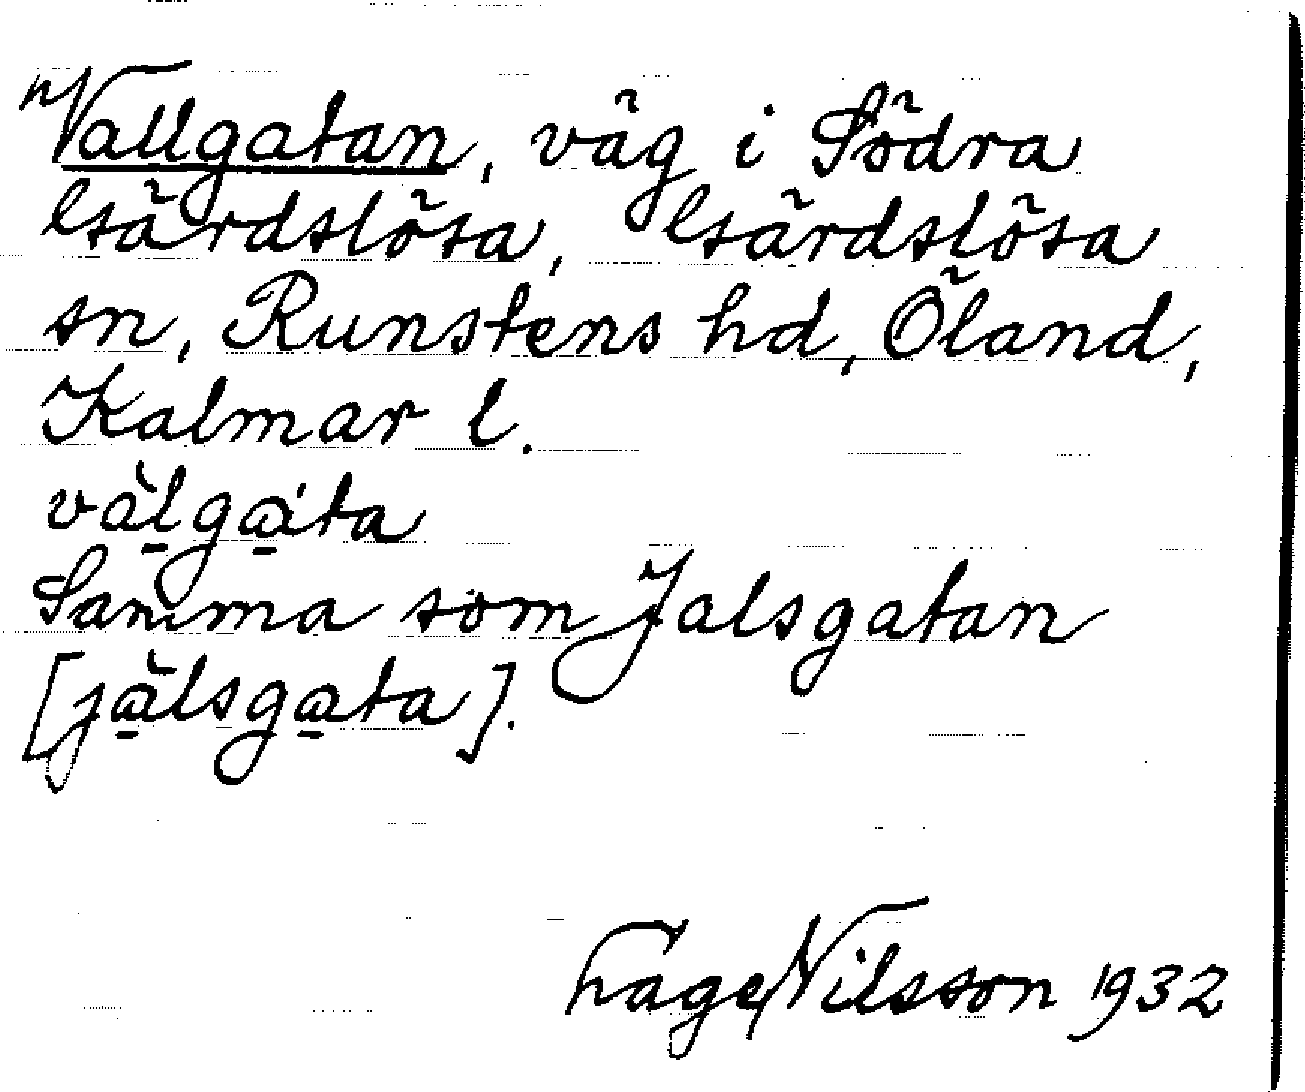 Vallgatan, väg i Södra
Gärdslösa, Gärdslösa
sn, Runstens hd, Öland,
Kalmar l.
vàl̠ga̠'ta
Samma som Jalsgatan
[jàl̠sga̠ta].
Tage Nilsson 1932